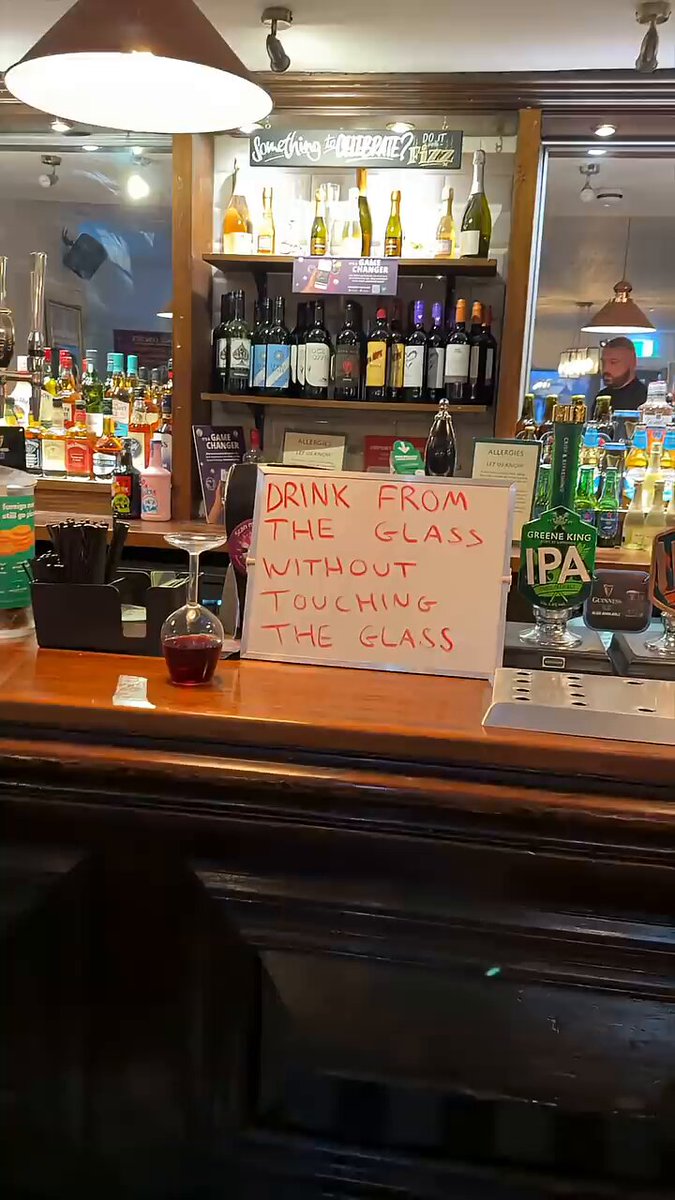 Something to CELEBRATE? DO IT
WITH Fizz
IT'S A GAME
CHANGER
IT'S A GAME
CHANGER
ALLERGIES
LET US KNOW!
ALLERGIES
LET US KNOW!
DRINK FROM
THE GLASS
WITHOUT
TOUCHING
THE GLASS
GREENE KING
IPA
GUINNESS
still go